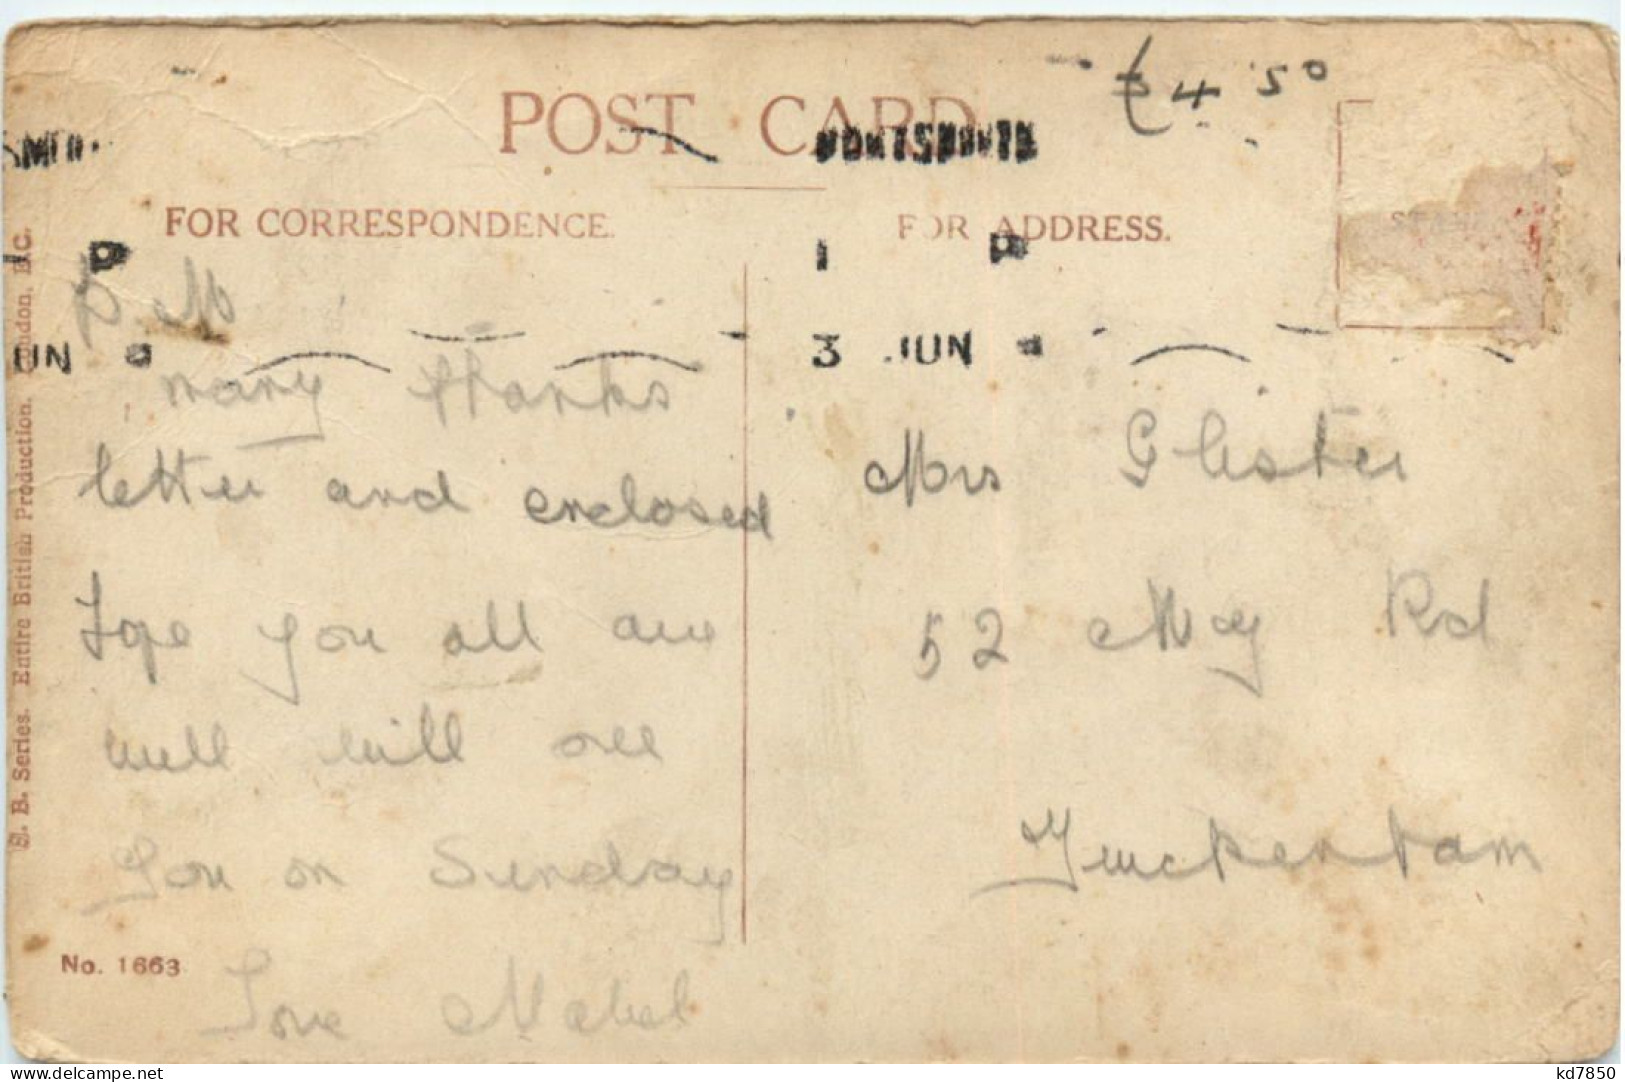 £4.50
POST CARD
PORTSMOUTH
FOR CORRESPONDENCE.
FOR ADDRESS.
STAMP
1 P
3 JUN
UN
D. M
many thanks
letter and enclosed
Hope you all are
well will see
you on Sunday
Love Mabel
Mrs Glister
52 May Rd
Twickenham
No. 1663
B. Series. Entire British Production. London, E.C.
kd7850
delcampe.net